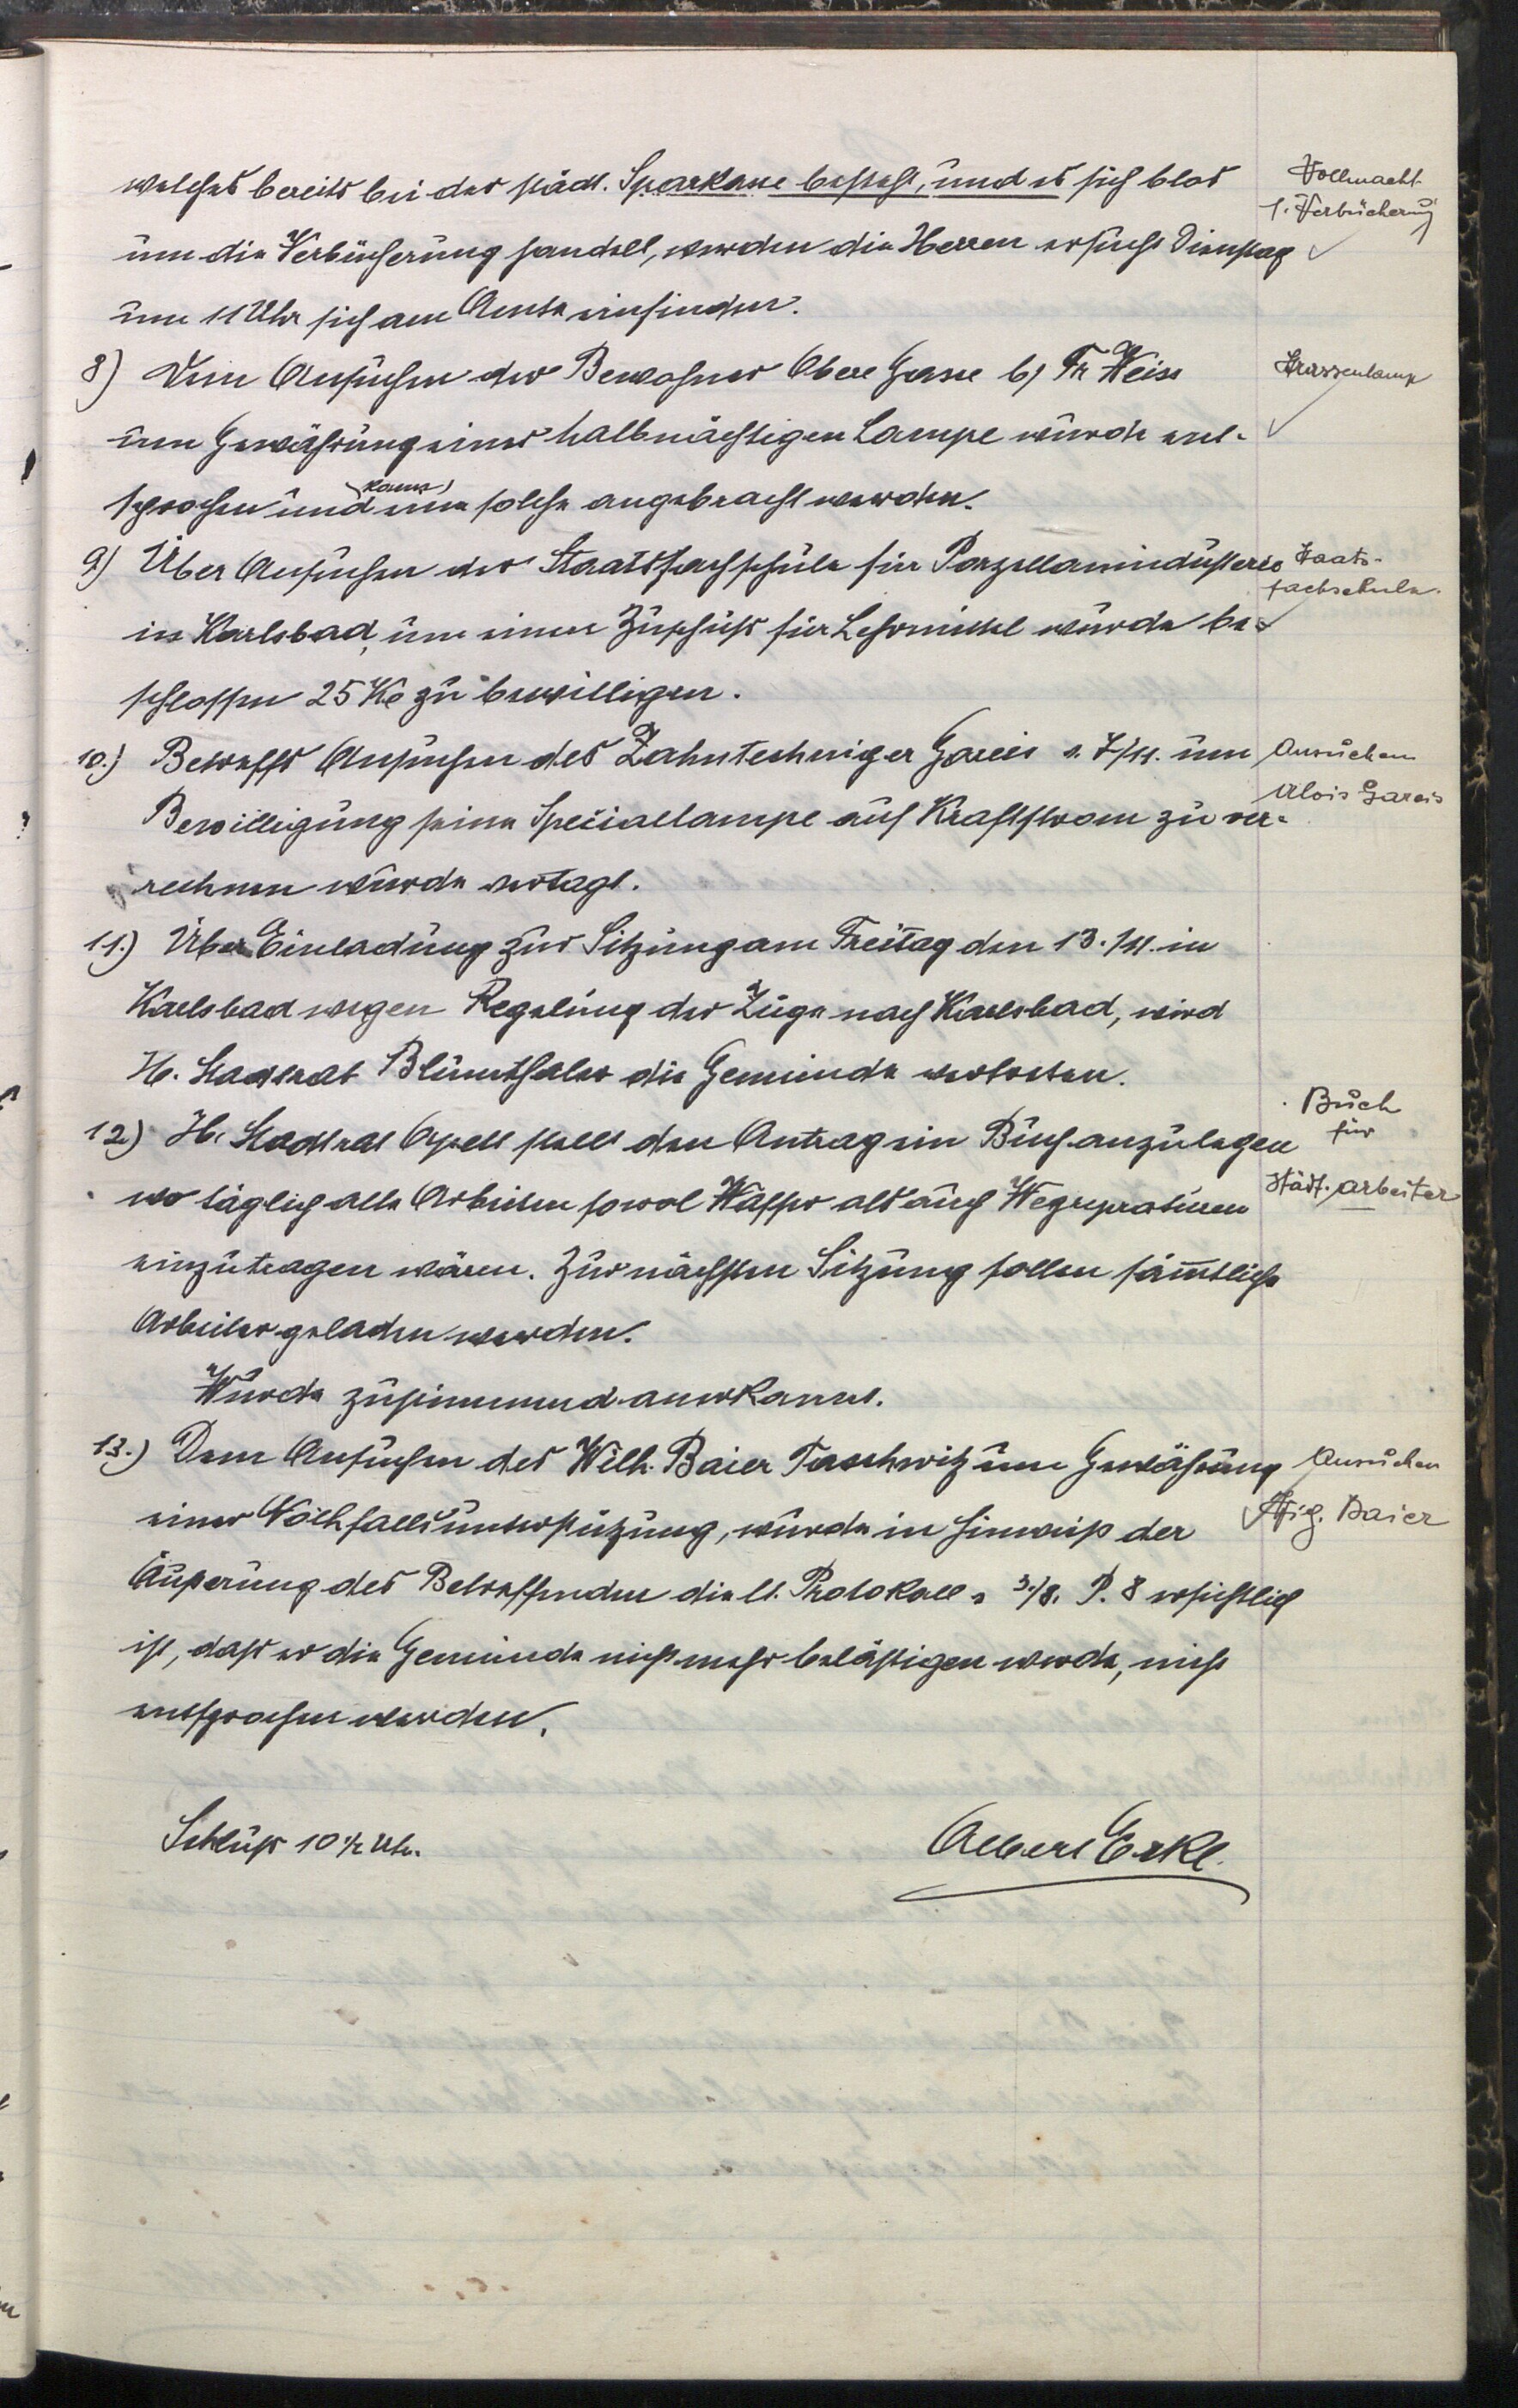 welches bereits bei der städt. Sparkasse besteht, und es sich blos
Vollmacht
f. Verbücherung
um die Verbücherung handelt, werden die Herren ersucht Dienstag
um 11 Uhr sich am Amte einfinden.
8) Dem Ansuchen der Bewohner Obere Gasse b/ Fr. Weiss
Strassenlamp
um Gewährung einer halbnächtigen Lampe wurde ent-
sprochen und kann eine solche angebracht werden.
9) Über Ansuchen der Staatsfachschule für Porzellanindusterie
Staats-
fachschule.
in Karlsbad, um einen Zuschuß für Lehrmittel wurde be-
schlossen 25 Kč zu bewilligen.
10.) Betrefft Ansuchen des Zahntechniger Gareis v. 7/11. um
Ansuchen
Alois Gareis
Bewilligung seine Speciallampe auf Kraftstrom zu ver-
rechnen wurde vertagt.
11.) Über Einladung zur Sitzung am Freitag den 13./11. in
Karlsbad wegen Regelung der Züge nach Karlsbad, wird
H. Stadtrat Blumthaler die Gemeinde vertreten.
12.) H. Stadtrat Opell stellt den Antrag ein Buch anzulegen
Buch
für
städt. Arbeiter
wo täglich alle Arbeiten sowol Wasser als auch Wegrepraturen
einzutragen wären. Zur nächsten Sitzung sollen sämtliche
Arbeiter geladen werden.
Wurde zustimmend anerkannt.
13.) Dem Ansuchen des Wilh. Baier Taschwitz um Gewährung
Ansuchen
Baier
einer Nothfallsunterstützung, wurde in Hinweiß der
Äußerung des Betreffenden die lt. Protokoll v. 3./8. P. 8 ersichtlich
ist, daß er die Gemeinde nicht mehr belästigen werde, nicht
entsprochen werden.
Schluß 10 ½ Uhr.
Albert Erkl.